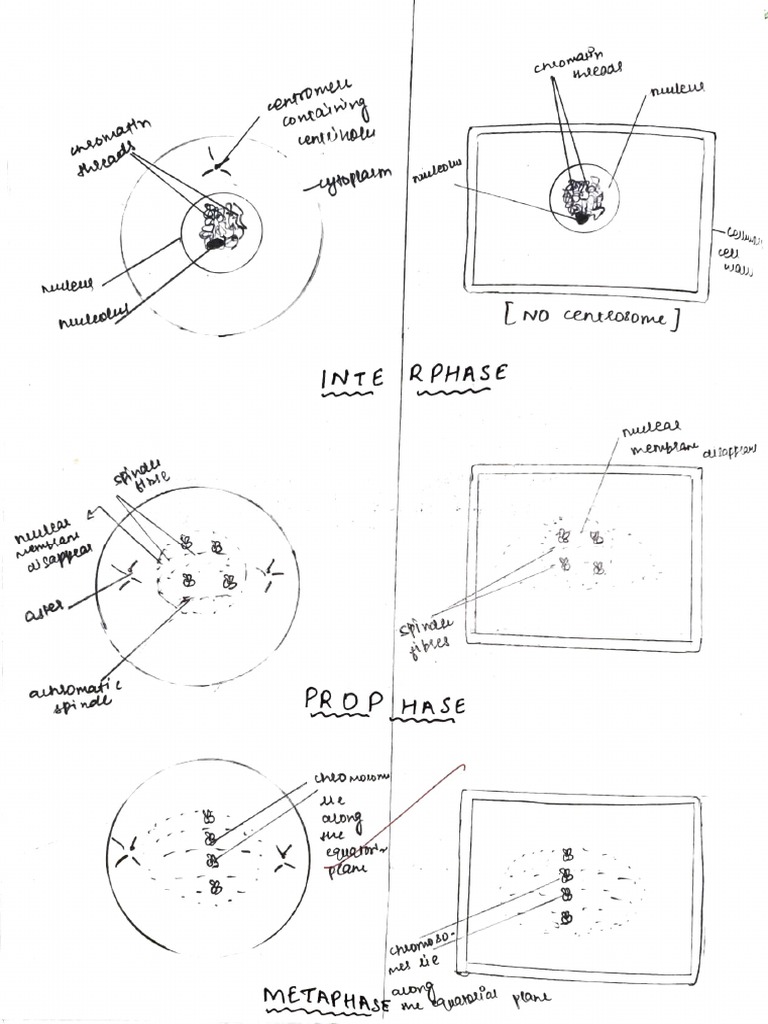 centromere
containing
centrioles
chromatin
threads
cytoplasm
nucleus
nucleolus
chromatin
threads
nucleus
nucleolus
cell
wall
[NO centrosome]
INTERPHASE
spindle
fibre
nuclear
membrane
disappear
aster
achromatic
spindle
nuclear
membrane disappears
spindle
fibres
PROPHASE
chromosomes
lie
along
the
equatorial
plane
chromoso-
mes lie
along
the equatorial plane
METAPHASE